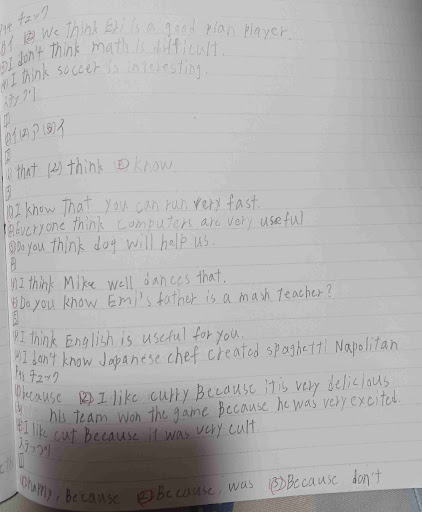 チェック
(2) We think Emi is a good pian player.
(3) I don't think math is difficult.
(4) I think soccer is interesting.
ステップ1
1
2
(1) that (2) think (3) know
3
(1) I know that you can run very fast.
(2) Everyone think computers are very useful
(3) Do you think dog will help us.
(1) I think Mike well dances that.
(2) Do you know Emi's father is a math teacher?
(1) I think English is useful for you.
(2) I don't know Japanese chef created spaghetti Napolitan
チェック
(1) because (2) I like curry Because it is very delicious
his team won the game Because he was very excited.
I like cut Because it was very cult
ステップ1
1
(1) happy, Because (2) Because, was (3) Because don't